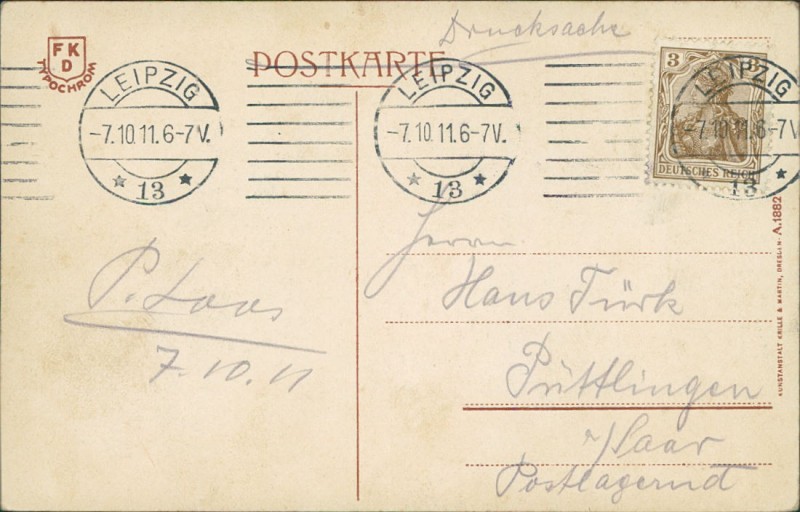 Drucksache
FKD
TYPOCHROM
POSTKARTE
3 3
DEUTSCHES REICH
LEIPZIG
-7.10.11.6-7V.
* 13 *
LEIPZIG
-7.10.11.6-7V.
* 13 *
LEIPZIG
-7.10.11.6-7V.
13 *
P. Laas
7.10.11
Herrn
Hans Türk
Püttlingen
a/Saar
Postlagernd
KUNSTANSTALT KRILLE & MARTIN, DRESDEN - A.1882